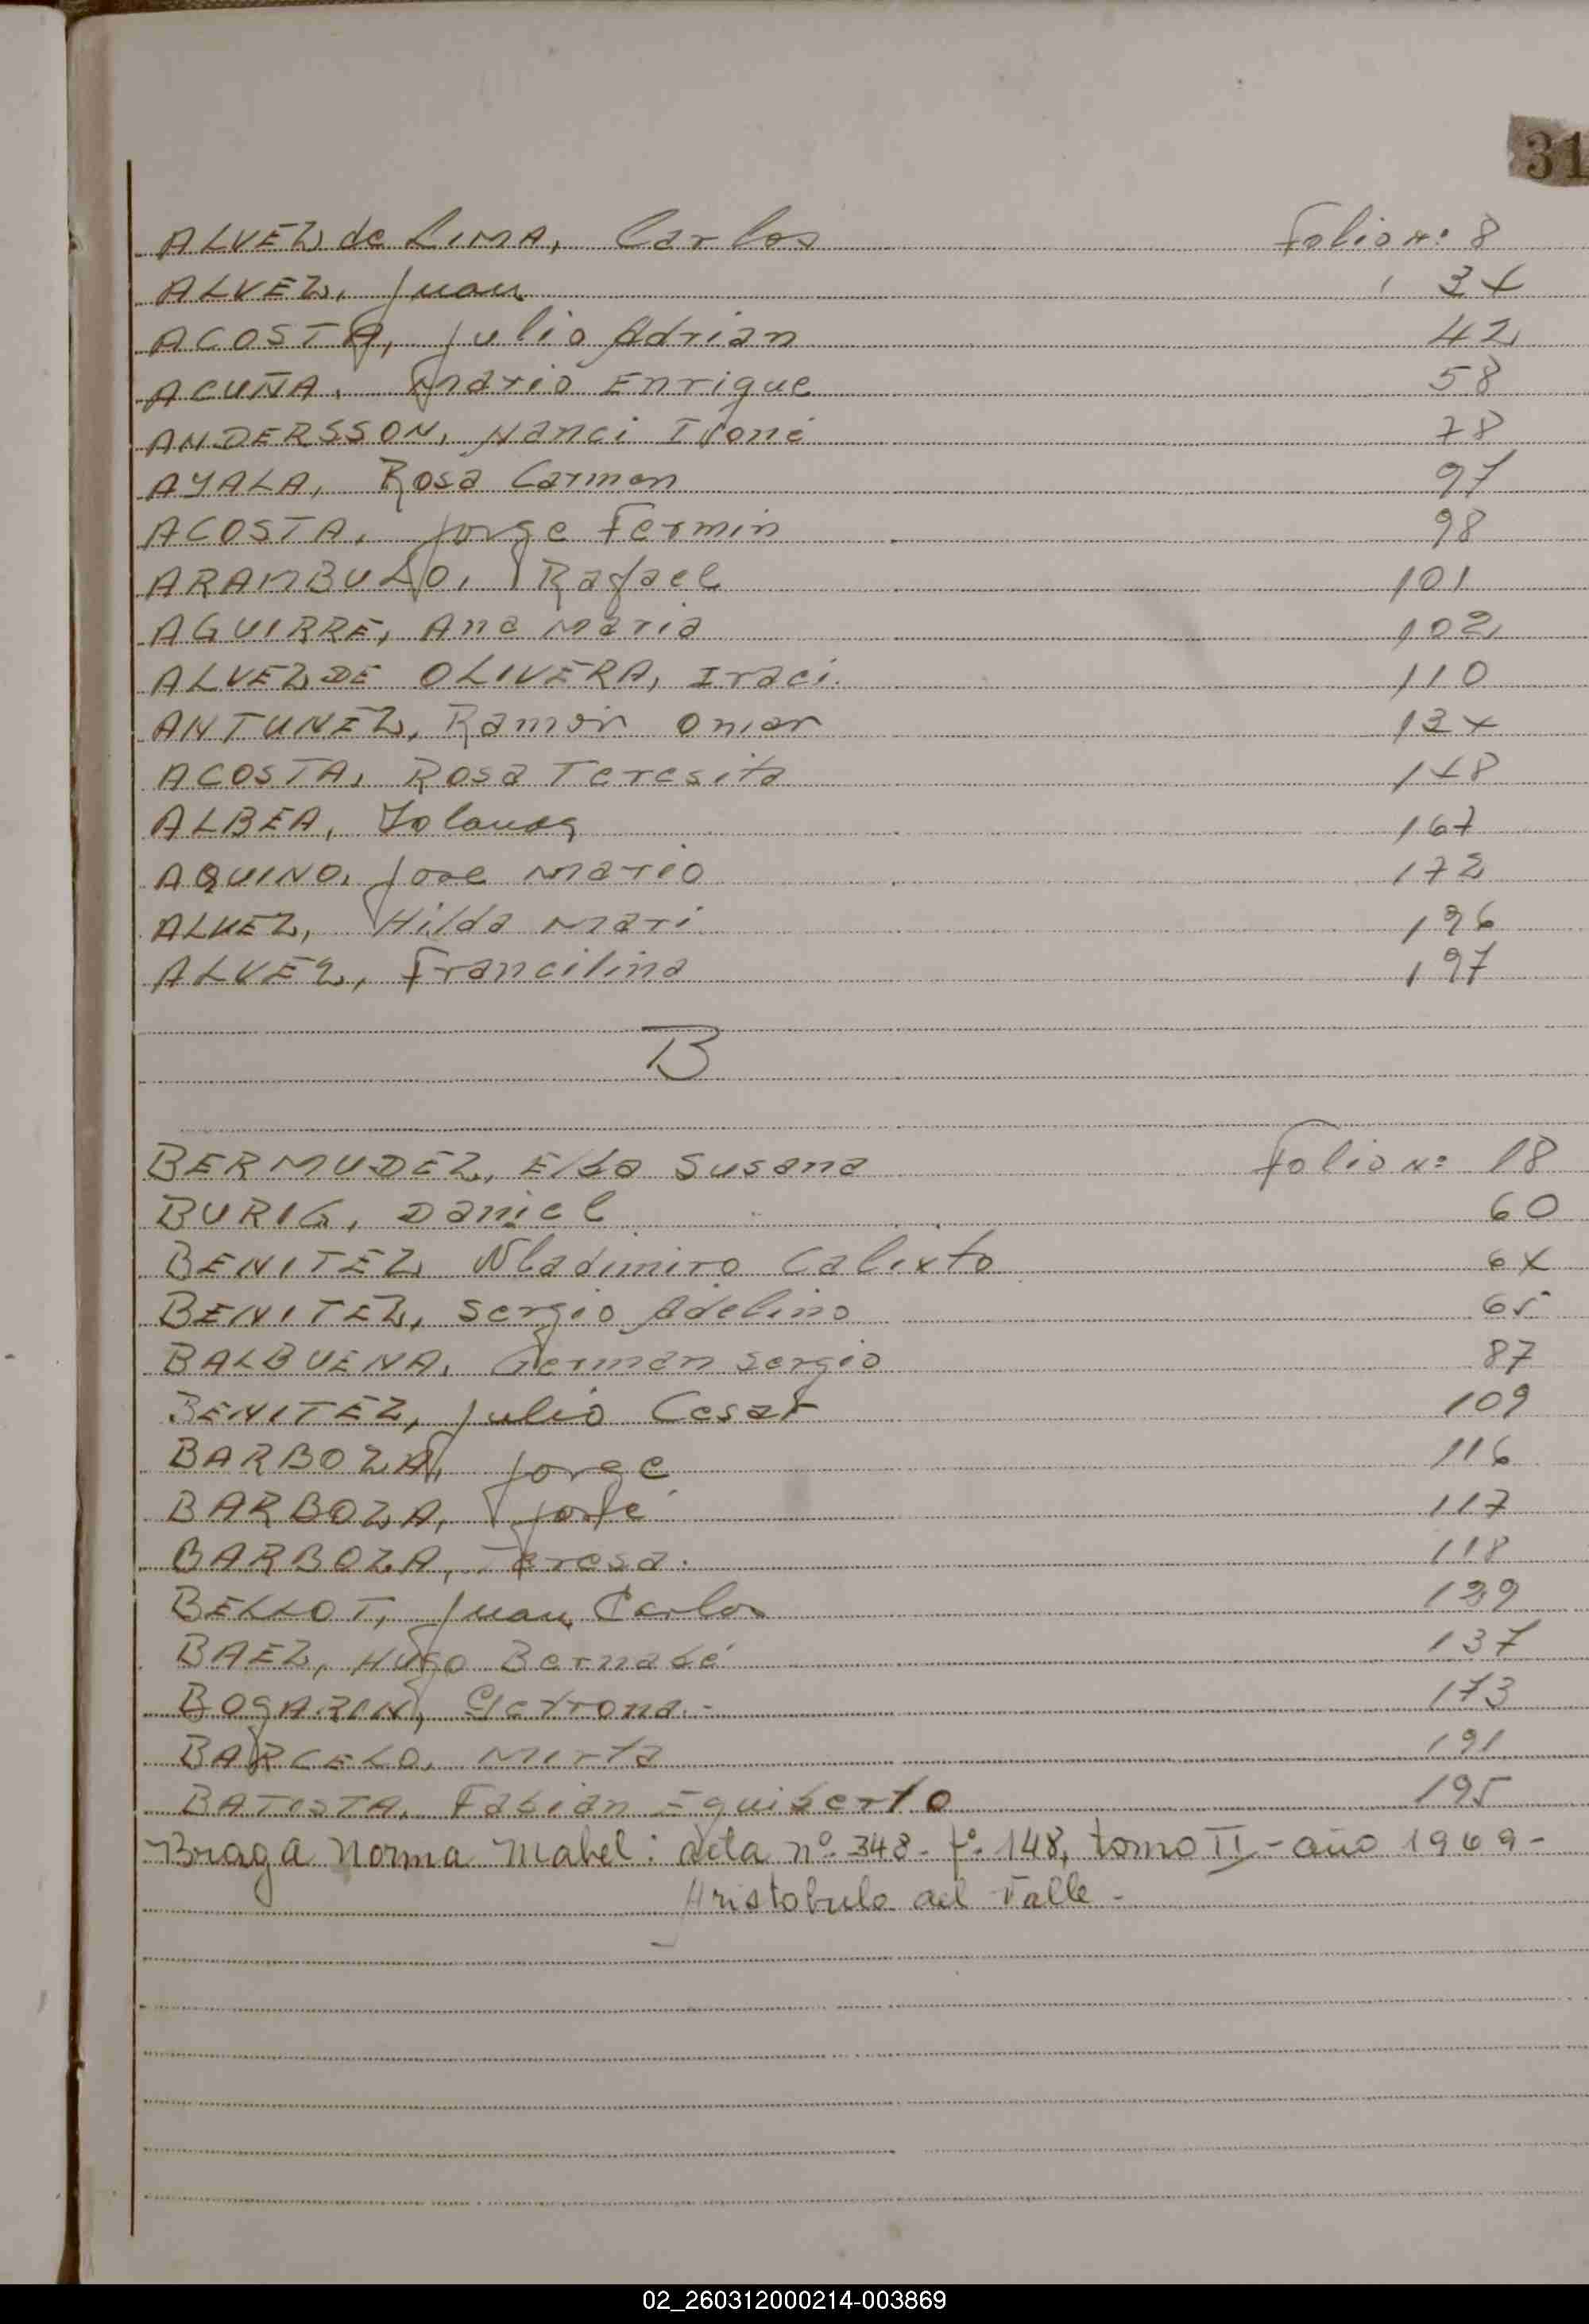 31
ALVEZ de LIMA, Carlos Folio Nº 8
ALVEZ, Juan 34
ACOSTA, Julio Adrian 42
ACUÑA, Mario Enrique 58
ANDERSSON, Nanci Ivone 78
AYALA, Rosa Carmen 97
ACOSTA, Jorge Fermin 98
ARAMBULO, Rafael 101
AGUIRRE, Ana Maria 102
ALVEZ DE OLIVERA, Iraci. 110
ANTUNEZ, Ramón Omar 134
ACOSTA, Rosa Teresita 148
ALBEA, 167
AQUINO, Jose Mario 172
ALVEZ, Hilda Mari 196
ALVEZ, Francilina 197
B
BERMUDEZ, Elba Susana Folio Nº 18
BURIG, Daniel 60
BENITEZ Wladimiro Calixto 64
BENITEZ, Sergio Adelino 65
BALBUENA, German Sergio 87
BENITEZ, Julio Cesar 109
BARBOZA, Jorge 116
BARBOZA, José 117
BARBOZA, Teresa. 118
BELLOT, Juan Carlos
BAEZ, Hugo Bernabé 137
BOGARIN, 173
BARCELO, Mirta 191
BATISTA, Fabian Eguiberto 195
Braga Norma Mabel: acta nº 348 - fº 148, tomo II - año 1969 -
Aristobulo del Valle -
02_260312000214-003869